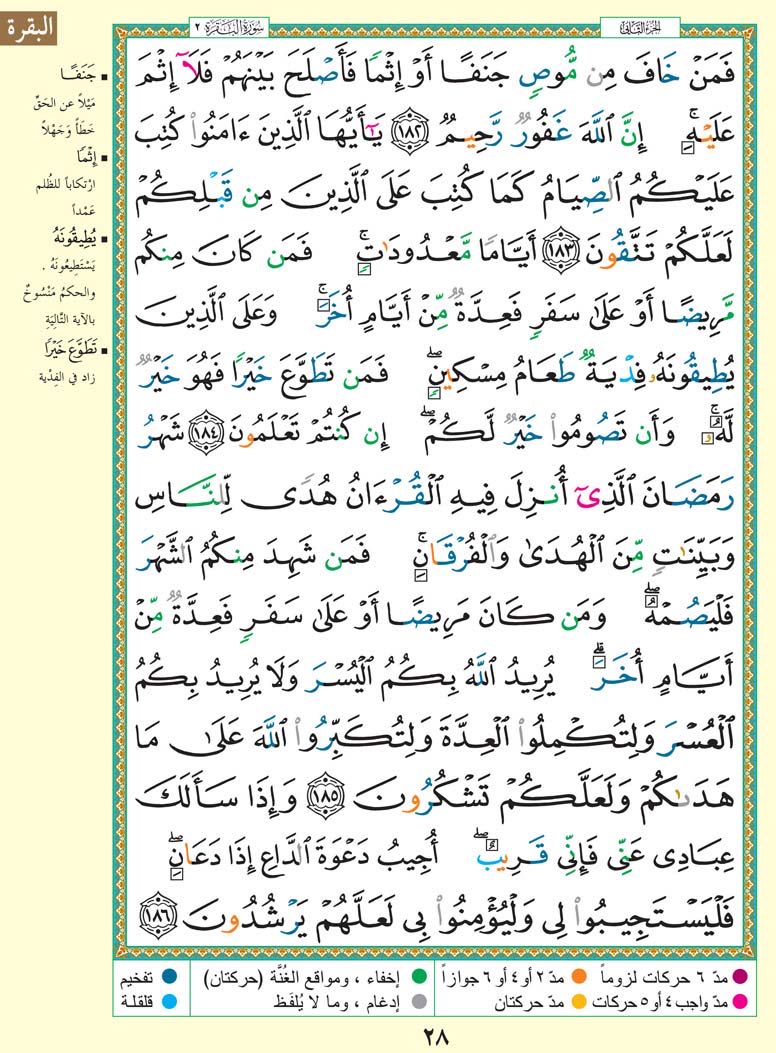 البقرة
الجزء الثاني
سورة البقرة ٢
فَمَنْ خَافَ مِن مُّوصٍ جَنَفًا أَوْ إِثْمًا فَأَصْلَحَ بَيْنَهُمْ فَلَآ إِثْمَ
عَلَيْهِۚ إِنَّ ٱللَّهَ غَفُورٌ رَّحِيمٌ ١٨٢ يَٰٓأَيُّهَا ٱلَّذِينَ ءَامَنُوا۟ كُتِبَ
عَلَيْكُمُ ٱلصِّيَامُ كَمَا كُتِبَ عَلَى ٱلَّذِينَ مِن قَبْلِكُمْ
لَعَلَّكُمْ تَتَّقُونَ ١٨٣ أَيَّامًا مَّعْدُودَٰتٍۚ فَمَن كَانَ مِنكُم
مَّرِيضًا أَوْ عَلَىٰ سَفَرٍ فَعِدَّةٌ مِّنْ أَيَّامٍ أُخَرَۚ وَعَلَى ٱلَّذِينَ
يُطِيقُونَهُۥ فِدْيَةٌ طَعَامُ مِسْكِينٍۖ فَمَن تَطَوَّعَ خَيْرًا فَهُوَ خَيْرٌ
لَّهُۥۚ وَأَن تَصُومُوا۟ خَيْرٌ لَّكُمْۖ إِن كُنتُمْ تَعْلَمُونَ ١٨٤ شَهْرُ
رَمَضَانَ ٱلَّذِىٓ أُنزِلَ فِيهِ ٱلْقُرْءَانُ هُدًى لِّلنَّاسِ
وَبَيِّنَٰتٍ مِّنَ ٱلْهُدَىٰ وَٱلْفُرْقَانِۚ فَمَن شَهِدَ مِنكُمُ ٱلشَّهْرَ
فَلْيَصُمْهُۖ وَمَن كَانَ مَرِيضًا أَوْ عَلَىٰ سَفَرٍ فَعِدَّةٌ مِّنْ
أَيَّامٍ أُخَرَۗ يُرِيدُ ٱللَّهُ بِكُمُ ٱلْيُسْرَ وَلَا يُرِيدُ بِكُمُ
ٱلْعُسْرَ وَلِتُكْمِلُوا۟ ٱلْعِدَّةَ وَلِتُكَبِّرُوا۟ ٱللَّهَ عَلَىٰ مَا
هَدَىٰكُمْ وَلَعَلَّكُمْ تَشْكُرُونَ ١٨٥ وَإِذَا سَأَلَكَ
عِبَادِى عَنِّى فَإِنِّى قَرِيبٌۖ أُجِيبُ دَعْوَةَ ٱلدَّاعِ إِذَا دَعَانِۖ
فَلْيَسْتَجِيبُوا۟ لِى وَلْيُؤْمِنُوا۟ بِى لَعَلَّهُمْ يَرْشُدُونَ ١٨٦
▪ جَنَفًا
مَيْلاً عن الحَقِّ
خَطَأً وَجَهْلاً
▪ إِثْمًا
ارْتكاباً للظُّلم
عَمْداً
▪ يُطِيقُونَهُ
يَسْتَطِيعُونَهُ .
والحكمُ مَنْسُوخٌ
بالآية التَّالِيَةِ
▪ تَطَوَّعَ خَيْرًا
زاد في الفِدْية
مدّ ٦ حركات لزوماً مدّ ٢ أو ٤ أو ٦ جوازاً إخفاء ، ومواقع الغُنَّة (حركتان) تفخيم
مدّ واجب ٤ أو ٥ حركات مدّ حركتان إدغام ، وما لا يُلفَظ قلقلة
٢٨